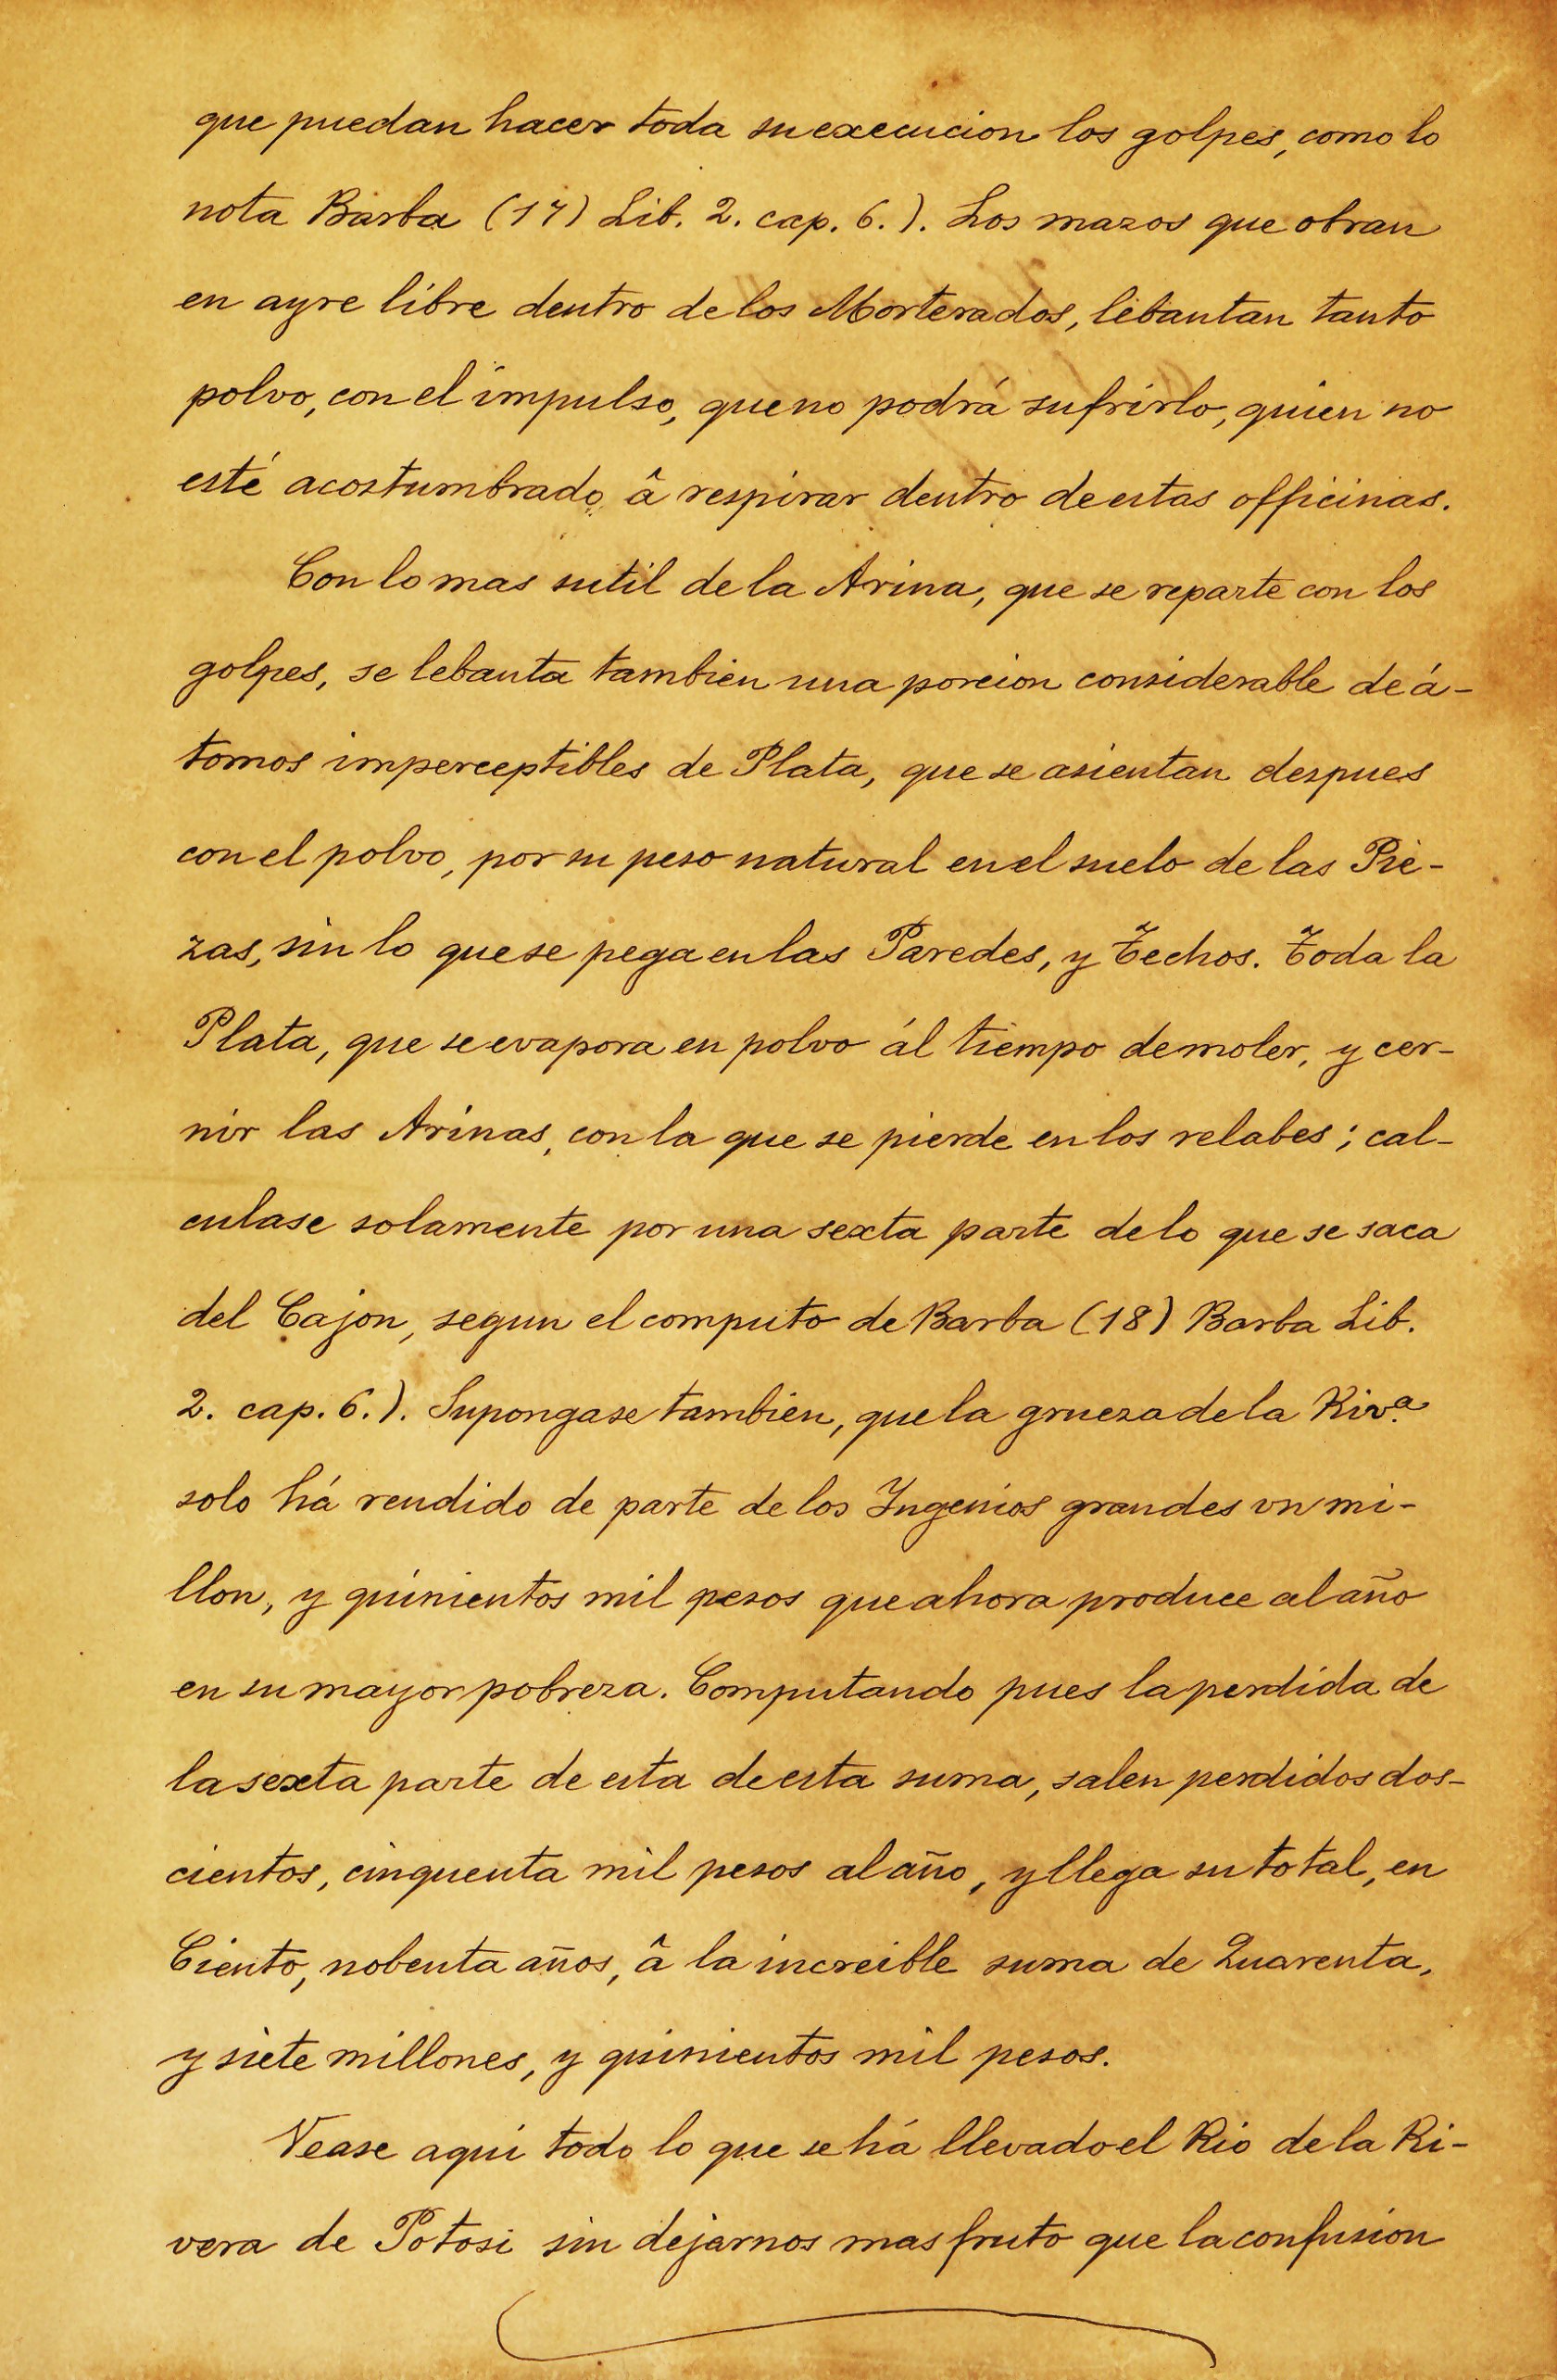 que puedan hacer toda su execucion los golpes, como lo
nota Barba (17) Lib. 2. cap. 6.). Los mazos que obran
en ayre libre dentro de los Morterados, lebantan tanto
polvo, con el impulso, que no podrá sufrirlo, quien no
esté acostumbrado â respirar dentro de estas officinas.
Con lo mas sutil de la Arina, que se reparte con los
golpes, se lebanta tambien una porcion considerable de á-
tomos imperceptibles de Plata, que se asientan despues
con el polvo, por su peso natural en el suelo de las Pie-
zas, sin lo que se pega en las Paredes, y Techos. Toda la
Plata, que se evapora en polvo ál tiempo de moler, y cer-
nir las Arinas, con la que se pierde en los relabes; cal-
culase solamente por una sexta parte de lo que se saca
del Cajon, segun el computo de Barba (18) Barba Lib.
2. cap. 6.). Supongase tambien, que la grueza de la Riv.ª
solo há rendido de parte de los Ingenios grandes vn mi-
llon, y quinientos mil pesos que ahora produce al año
en su mayor pobreza. Computando pues la perdida de
la sexta parte de esta de esta suma, salen perdidos dos-
cientos, cinquenta mil pesos al año, y llega su total, en
Ciento, nobenta años, â la increible suma de Quarenta,
y siete millones, y quinientos mil pesos.
Vease aqui todo lo que se há llevado el Rio de la Ri-
vera de Potosi sin dejarnos mas fruto que la confusion